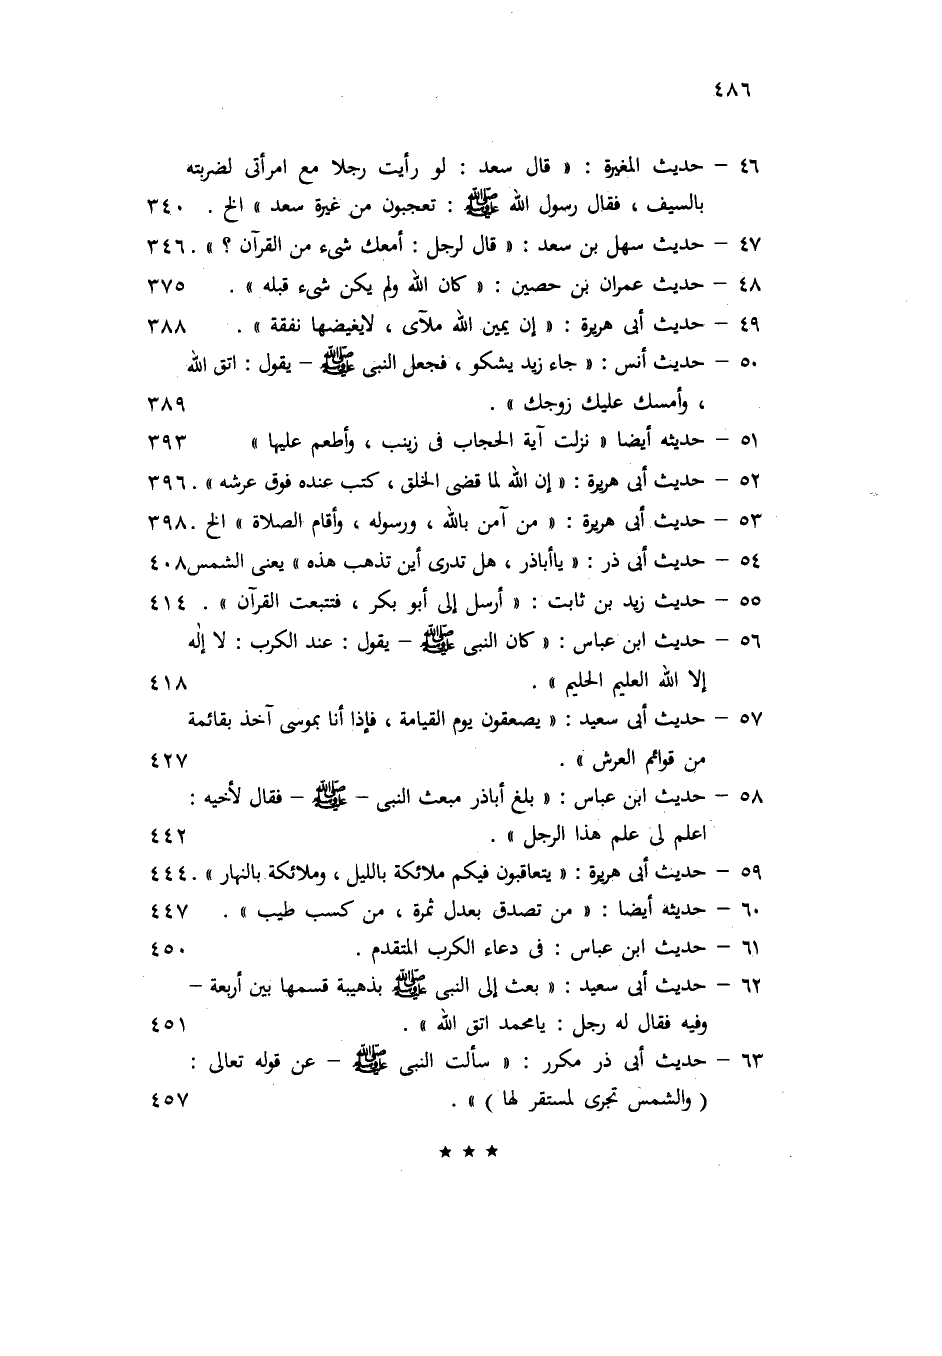 ٤٨٦
٤٦ – حديث المغيرة : « قال سعد : لو رأيت رجلا مع امرأتى لضربته
بالسيف ، فقال رسول الله ﷺ : تعجبون من غيرة سعد » الخ . ٣٤٠
٤٧ – حديث سهل بن سعد : « قال لرجل : أمعك شىء من القرآن ؟ » . ٣٤٦
٤٨ – حديث عمران بن حصين : « كان الله ولم يكن شىء قبله » . ٣٧٥
٤٩ – حديث أبى هريرة : « إن يمين الله ملآى ، لايغيضها نفقة » . ٣٨٨
٥٠ – حديث أنس : « جاء زيد يشكو ، فجعل النبى ﷺ – يقول : اتق الله
، وأمسك عليك زوجك » . ٣٨٩
٥١ – حديثه أيضا « نزلت آية الحجاب فى زينب ، وأطعم عليها » ٣٩٣
٥٢ – حديث أبى هريرة : « إن الله لما قضى الخلق ، كتب عنده فوق عرشه » . ٣٩٦
٥٣ – حديث أبى هريرة : « من آمن بالله ، ورسوله ، وأقام الصلاة » الخ . ٣٩٨
٥٤ – حديث أبى ذر : « ياأباذر ، هل تدرى أين تذهب هذه » يعنى الشمس ٤٠٨
٥٥ – حديث زيد بن ثابت : « أرسل إلى أبو بكر ، فتتبعت القرآن » . ٤١٤
٥٦ – حديث ابن عباس : « كان النبى ﷺ – يقول : عند الكرب : لا إله
إلا الله العليم الحليم » . ٤١٨
٥٧ – حديث أبى سعيد : « يصعقون يوم القيامة ، فإذا أنا بموسى آخذ بقائمة
من قوائم العرش » . ٤٢٧
٥٨ – حديث ابن عباس : « بلغ أباذر مبعث النبى – ﷺ – فقال لأخيه :
اعلم لى علم هذا الرجل » . ٤٤٢
٥٩ – حديث أبى هريرة : « يتعاقبون فيكم ملائكة بالليل ، وملائكة بالنهار » . ٤٤٤
٦٠ – حديثه أيضا : « من تصدق بعدل ثمرة ، من كسب طيب » . ٤٤٧
٦١ – حديث ابن عباس : فى دعاء الكرب المتقدم . ٤٥٠
٦٢ – حديث أبى سعيد : « بعث إلى النبى ﷺ بذهيبة قسمها بين أربعة –
وفيه فقال له رجل : يامحمد اتق الله » . ٤٥١
٦٣ – حديث أبى ذر مكرر : « سألت النبى ﷺ – عن قوله تعالى :
( والشمس تجرى لمستقر لها ) » . ٤٥٧
★ ★ ★